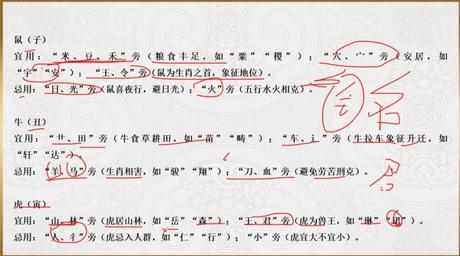 鼠（子）
宜用：“米、豆、禾”旁（粮食丰足，如“粟”“稷”）；“穴、宀”旁（安居，如
“宇”“安”）；“王、令”旁（鼠为生肖之首，象征地位）。
忌用：“日、光”旁（鼠喜夜行，避日光）；“火”旁（五行水火相克）。
牛（丑）
宜用：“艹、田”旁（牛食草耕田，如“苗”“畴”）；“车、辶”旁（牛拉车象征升迁，如
“轩”“达”）。
忌用：“羊、马”旁（生肖相害，如“骏”“翔”）；“刀、血”旁（避免劳苦刑克）。
虎（寅）
宜用：“山、林”旁（虎居山林，如“岳”“森”）；“王、君”旁（虎为兽王，如“琳”“珺”）。
忌用：“人、彳”旁（虎忌入人群，如“仁”“行”）；“小”旁（虎宜大不宜小）。